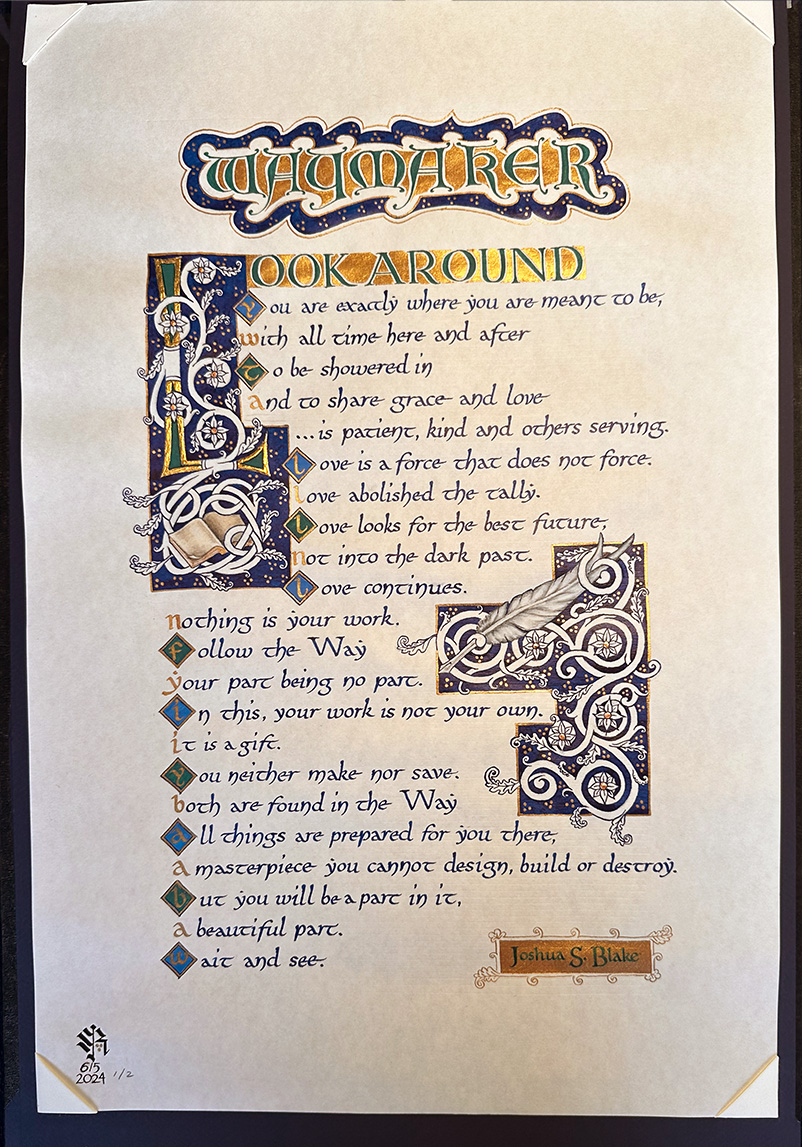 WAYMAKER
LOOK AROUND
You are exactly where you are meant to be,
with all time here and after
To be showered in
and to share grace and love
...is patient, kind and others serving.
Love is a force that does not force.
love abolished the tally.
Love looks for the best future,
not into the dark past.
Love continues.
nothing is your work.
Follow the Way
your part being no part.
In this, your work is not your own.
it is a gift.
You neither make nor save.
both are found in the Way
All things are prepared for you there,
a masterpiece you cannot design, build or destroy.
But you will be a part in it,
a beautiful part.
Wait and see.
Joshua S. Blake
6/5
2024 1/2